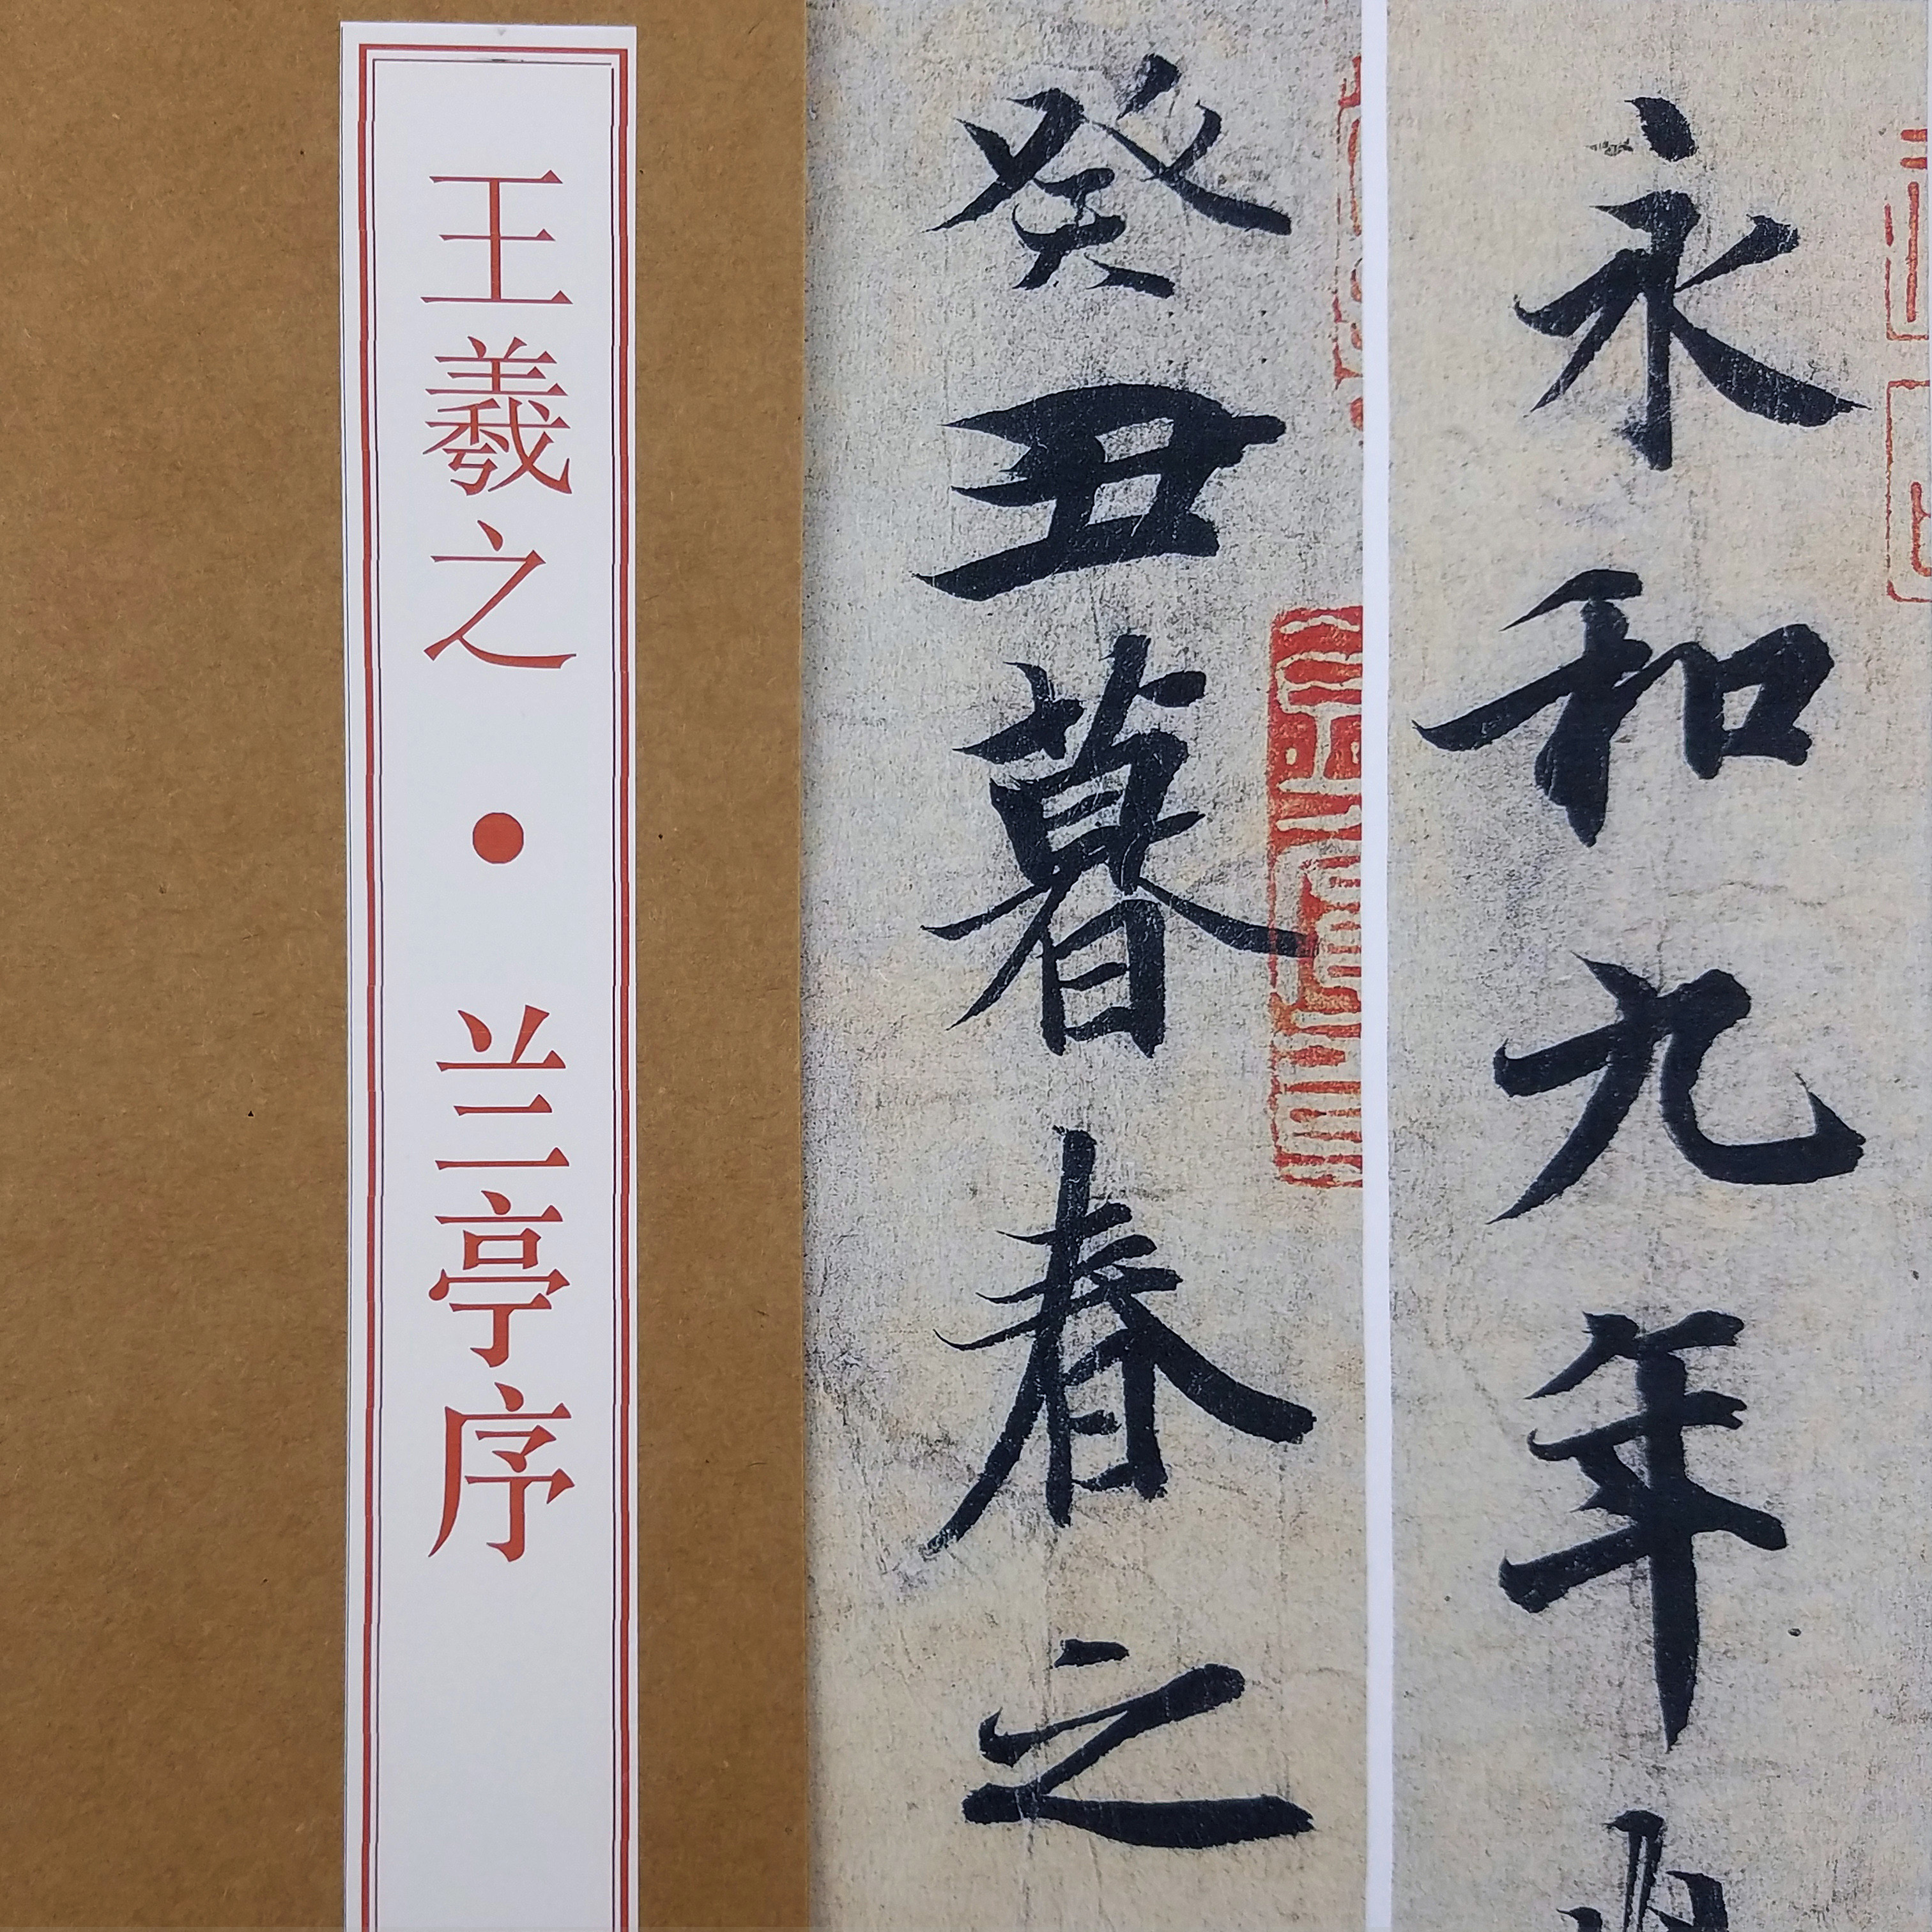 永和九年
癸丑暮春之
王羲之・兰亭序